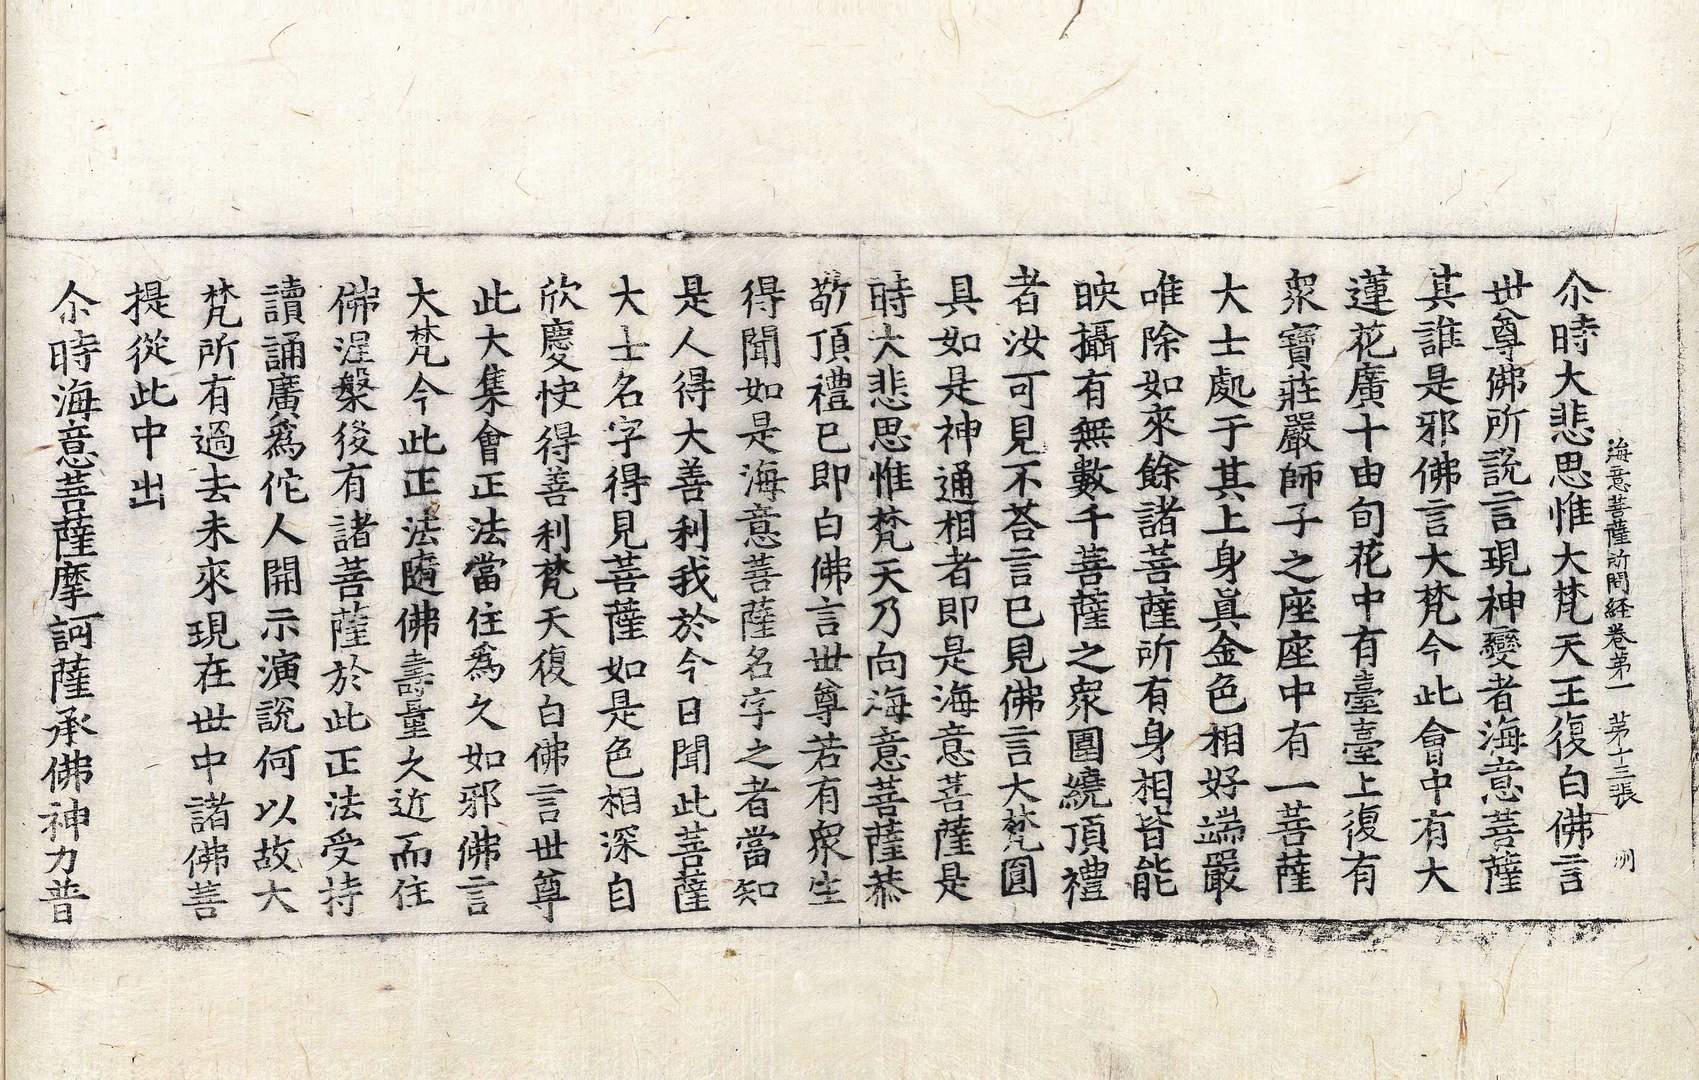 海意菩薩所問経卷苐一 苐十三張 洌
尒時大悲思惟大梵天王復白佛言
世尊佛所說言現神變者海意菩薩
其誰是邪佛言大梵今此會中有大
蓮花廣十由旬花中有臺臺上復有
衆寶莊嚴師子之座座中有一菩薩
大士處于其上身真金色相好端嚴
唯除如來餘諸菩薩所有身相皆能
映攝有無數千菩薩之衆圍繞頂禮
者汝可見不荅言已見佛言大梵圓
具如是神通相者即是海意菩薩是
時大悲思惟梵天乃向海意菩薩恭
敬頂禮已即白佛言世尊若有衆生
得聞如是海意菩薩名字之者當知
是人得大善利我於今日聞此菩薩
大士名字得見菩薩如是色相深自
欣慶快得善利梵天復白佛言世尊
此大集會正法當住為久如邪佛言
大梵今此正法隨佛壽量久近而住
佛涅槃後有諸菩薩於此正法受持
讀誦廣為佗人開示演說何以故大
梵所有過去未來現在世中諸佛菩
提從此中出
尒時海意菩薩摩訶薩承佛神力普